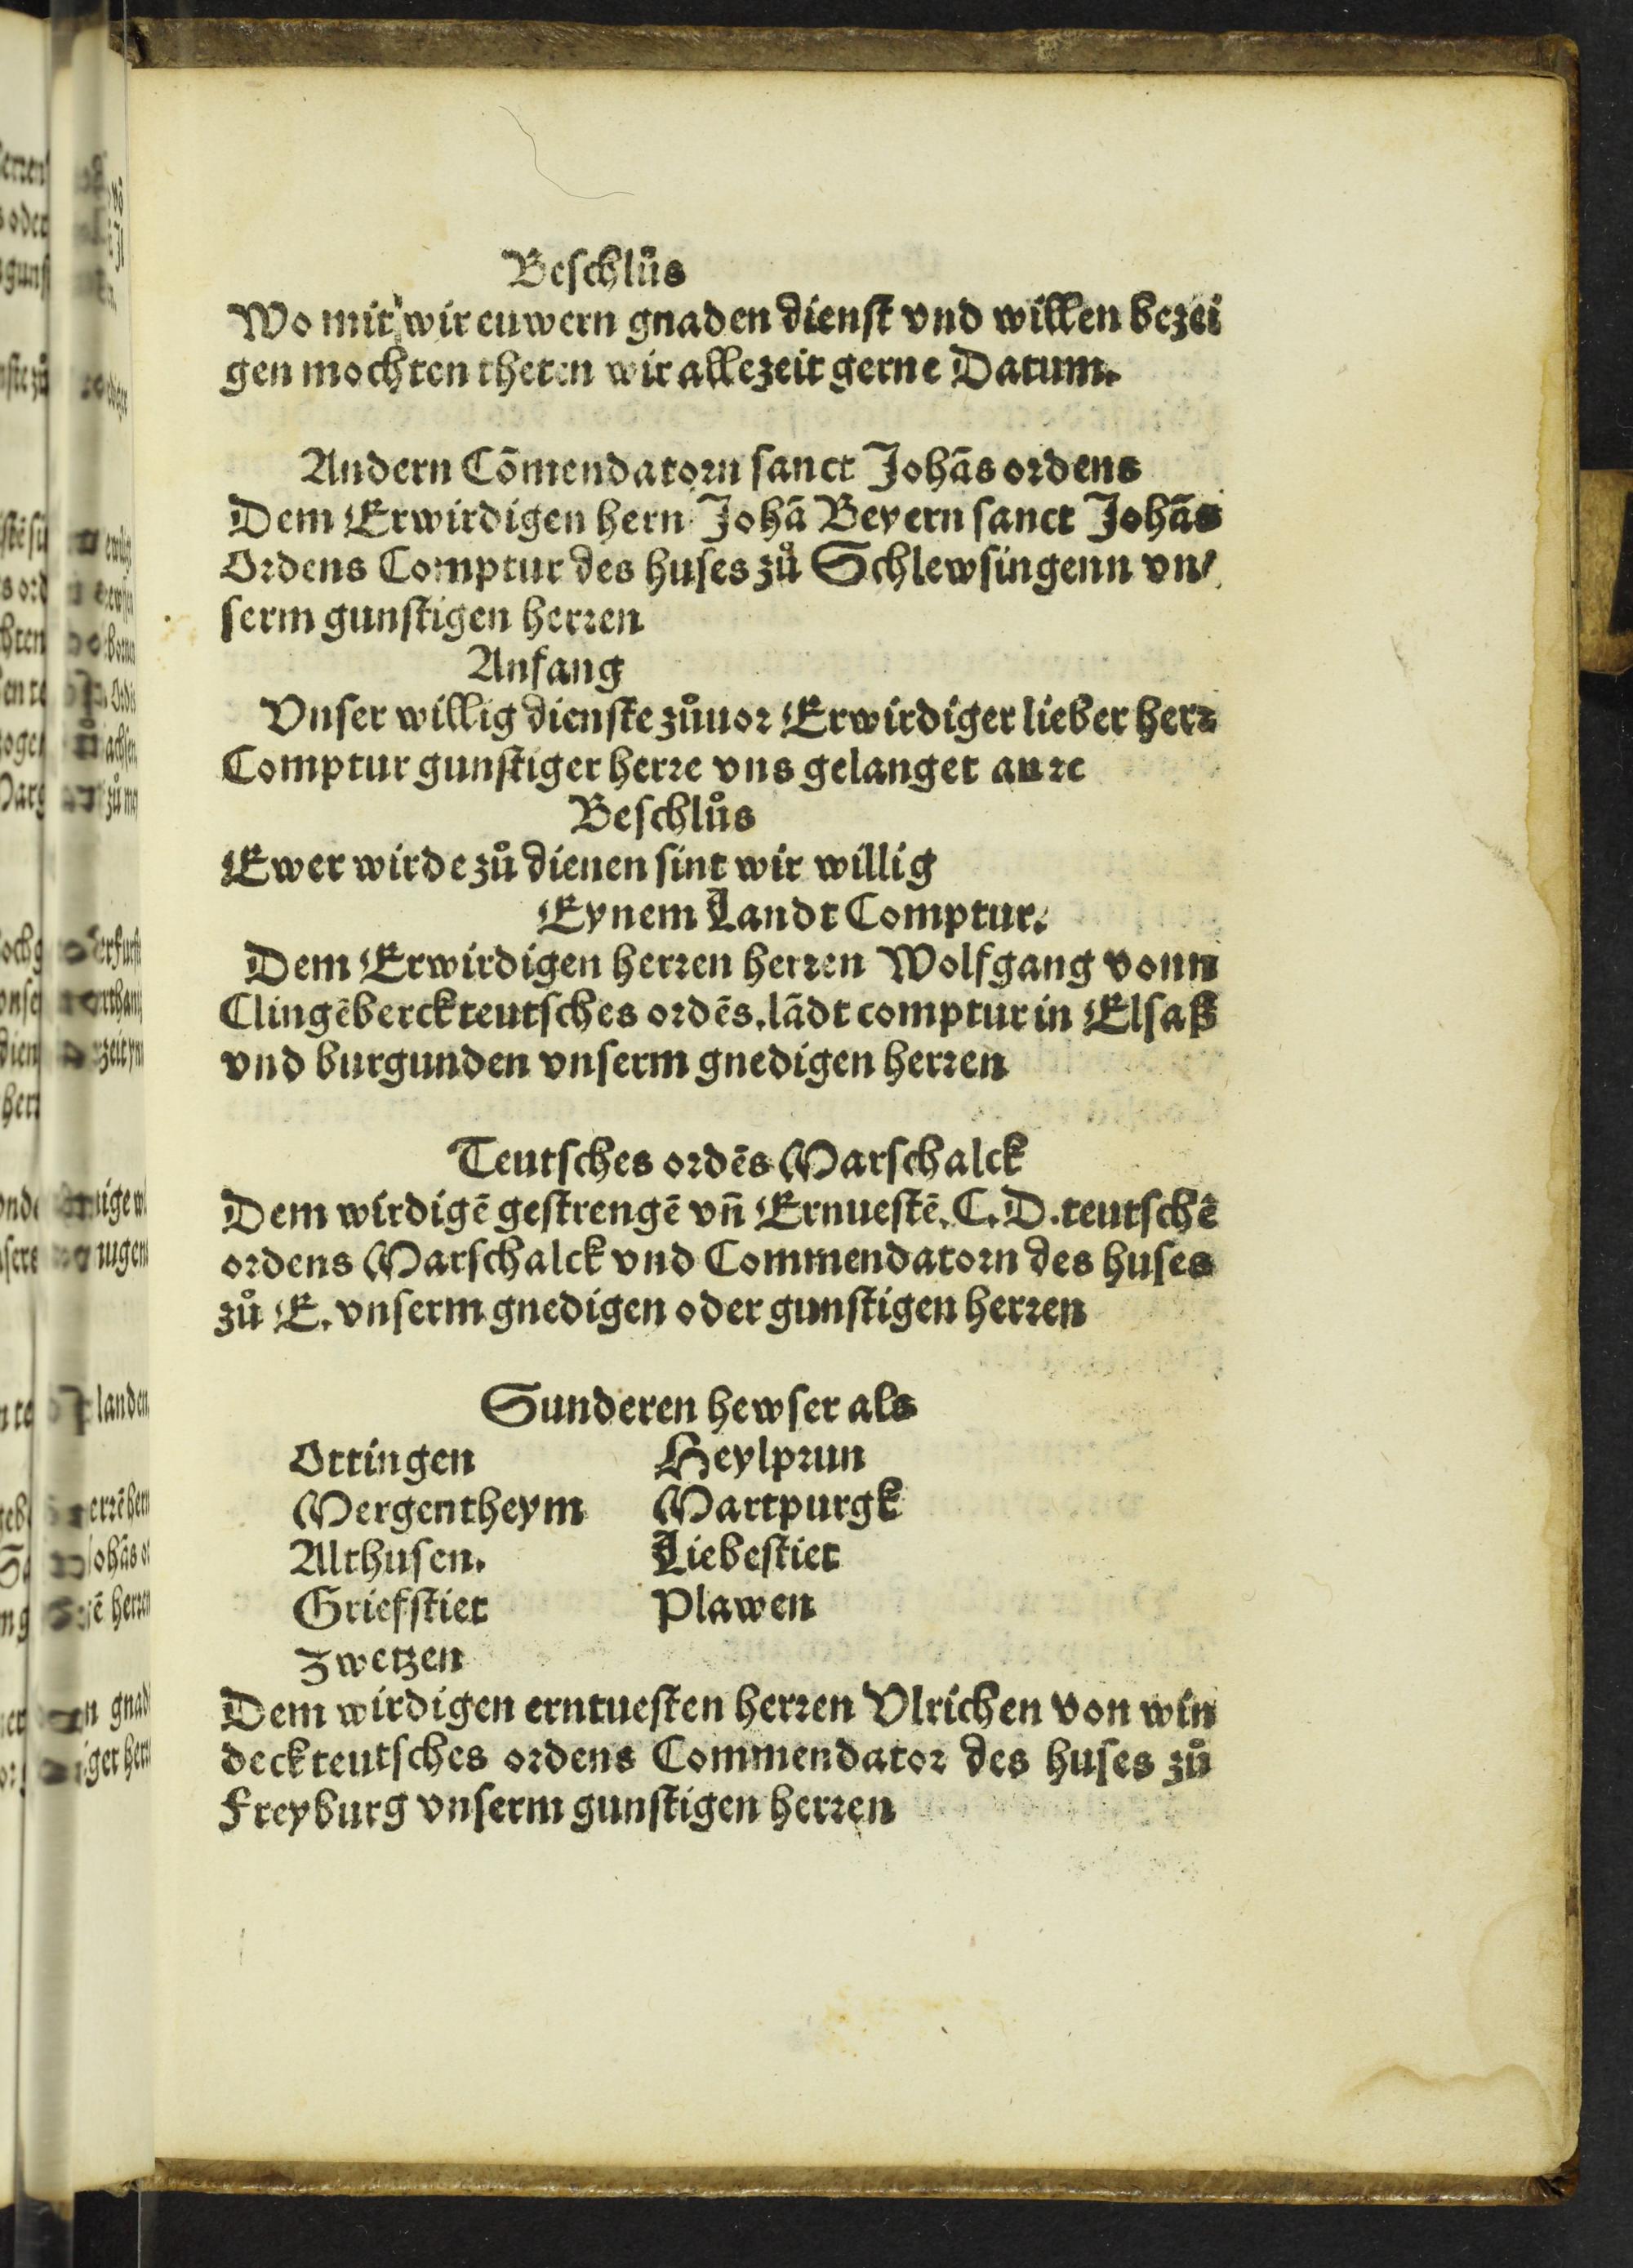 Beschlůs
Wo mit wir euwern gnaden dienst vnd willen bezei
gen mochten theten wir allezeit gerne Datum.
Andern Cōmendatorn sanct Johās ordens
Dem Erwirdigen hern Johā Beyern sanct Johās
Ordens Comptur des huses zů Schlewsingenn vn/
serm gunstigen herren
Anfang
Vnser willig dienste zůuor Erwirdiger lieber herr
Comptur gunstiger herre vns gelanget an ꝛc
Beschlůs
Ewer wirde zů dienen sint wir willig
Eynem Landt Comptur.
Dem Erwirdigen herren herren Wolfgang vonn
Clingēberck teutsches ordēs. lādt comptur in Elsaß
vnd burgunden vnserm gnedigen herren
Teutsches ordēs Marschalck
Dem wirdigē gestrengē vn̄ Ernuestē. C. D. teutschē
ordens Marschalck vnd Commendatorn des huses
zů E. vnserm gnedigen oder gunstigen herren
Sunderen hewser als
Ottingen Heylprun
Mergentheym Martpurgk
Althusen. Liebestiet
Griefstiet Plawen
Zwetzen
Dem wirdigen erntuesten herren Vlrichen von win
deck teutsches ordens Commendator des huses zů
Freyburg vnserm gunstigen herren